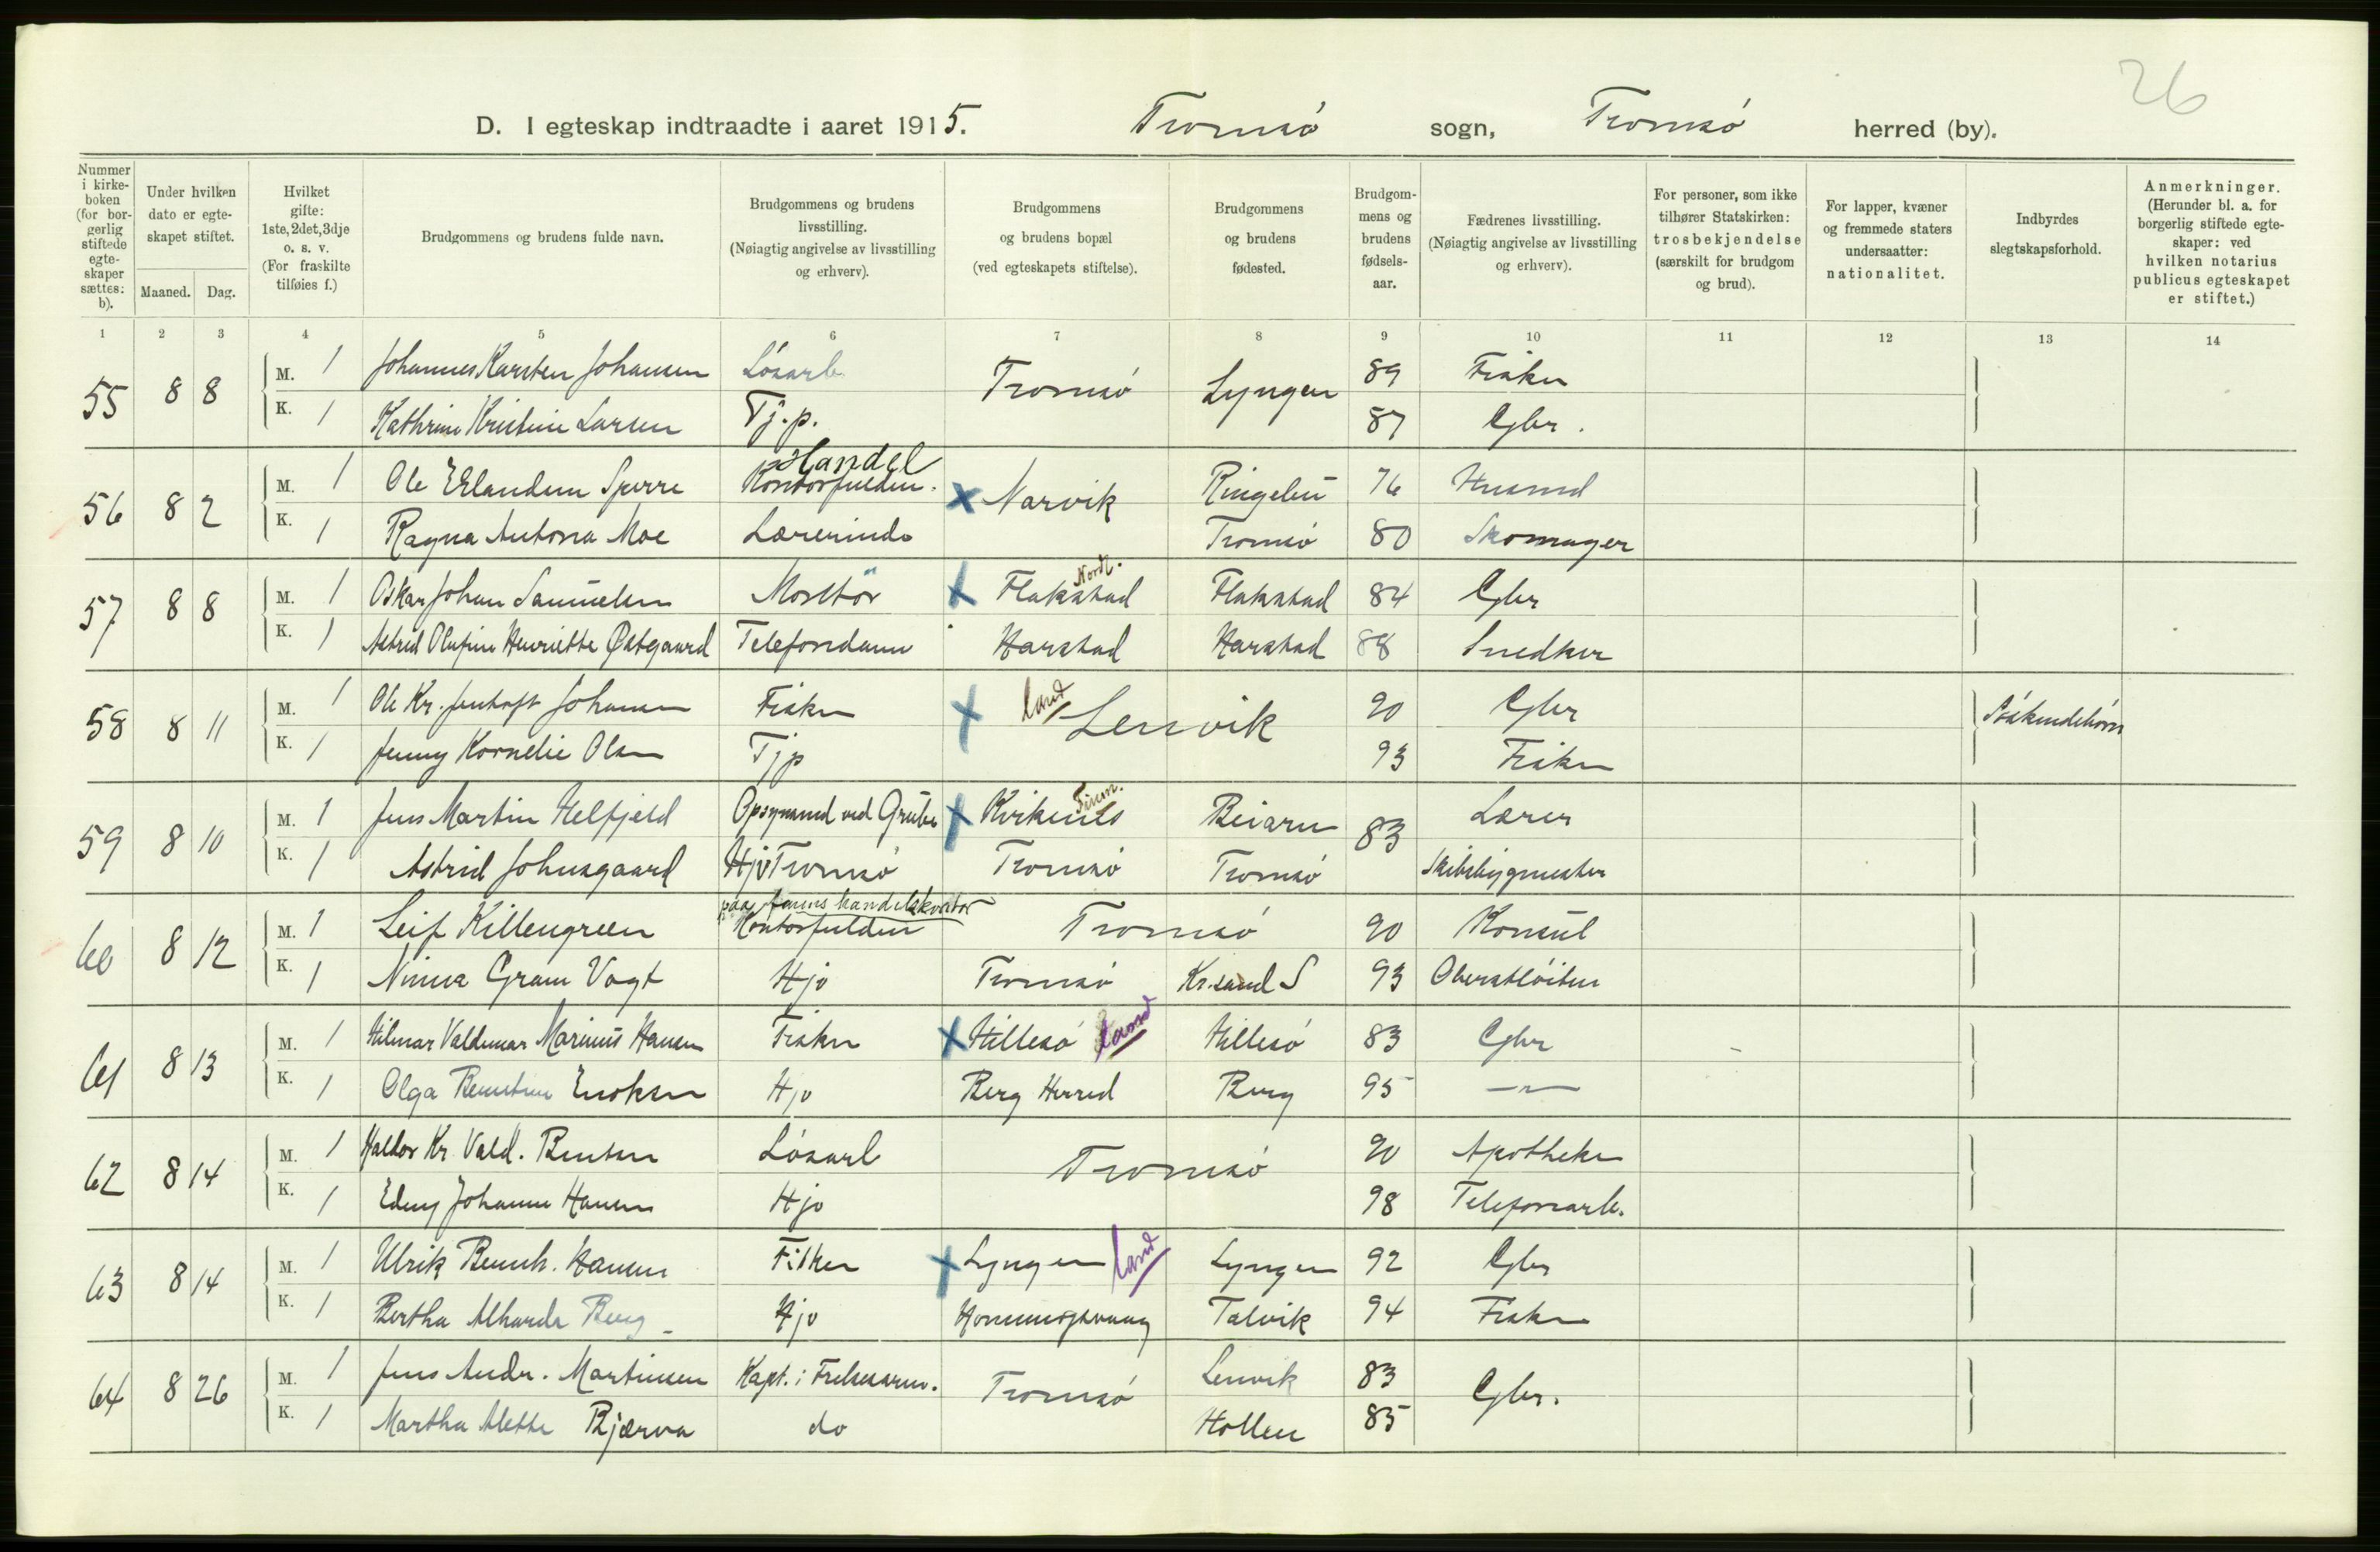 26
D. I egteskap indtraadte i aaret 1915. Tromsø sogn, Tromsø herred (by).
Nummer i kirke-boken (for bor-gerlig stiftede egte-skaper sættes: b).
Under hvilken dato er egte-skapet stiftet.
Maaned. Dag.
Hvilket gifte: 1ste, 2det, 3dje o. s. v. (For fraskilte tilføies f.)
Brudgommens og brudens fulde navn.
Brudgommens og brudens livsstilling. (Nøiagtig angivelse av livsstilling og erhverv).
Brudgommens og brudens bopæl (ved egteskapets stiftelse).
Brudgommens og brudens fødested.
Brudgom-mens og brudens fødsels-aar.
Fædrenes livsstilling. (Nøiagtig angivelse av livsstilling og erhverv).
For personer, som ikke tilhører Statskirken: trosbekjendelse (særskilt for brudgom og brud).
For lapper, kvæner og fremmede staters undersaatter: nationalitet.
Indbyrdes slegtskapsforhold.
Anmerkninger. (Herunder bl. a. for borgerlig stiftede egte-skaper: ved hvilken notarius publicus egteskapet er stiftet.)
1 2 3 4 5 6 7 8 9 10 11 12 13 14
55 8 8 M. 1 Johannes Karsten Johansen Løsarb Tromsø Lyngen 89 Fisker
K. 1 Kathrine Kristine Larsen Tj.p. 87 Gbr.
Handel
56 8 2 M. 1 Ole Erlandsen Sperre Kontorfuldm. x Narvik Ringebu 76 Husmd
K. 1 Ragna Antona Moe Lærerinde Tromsø 80 Skomager
Nordl.
57 8 8 M. 1 Oskar Johan Samuelsen x Flakstad Flakstad 84 Gbr
K. 1 Astrid Olufine Henriette Østgaard Telefondame Harstad Harstad 88 Snedker
58 8 11 M. 1 Ole Kr. Jentoft Johansen Fisker x land Lenvik 90 Gbr Søskendebørn
K. 1 Jenny Kornelie Olsen Tjp 93 Fisker
Finm.
59 8 10 M. 1 Jens Martin Helfjeld Opsynsmd ved Grube x Kirkenes Beiarn 83 Lærer
K. 1 Astrid Johnsgaard Hjv Tromsø Tromsø Tromsø Skibsbygmester
paa farens handelskontor
60 8 12 M. 1 Leif Killengreen Kontorfuldm Tromsø 90 Konsul
K. 1 Ninna Gram Vogt Hjv Tromsø Kr.sand S 93 Oberstløitn
61 8 13 M. 1 Hilmar Valdemar Marinus Hansen Fisker x Hillesø land Hillesø 83 Gbr
K. 1 Olga Enoksen Hjv Berg Herred Berg 95 —"—
62 8 14 M. 1 Haldor Kr. Vald. Bentsen Løsarb Tromsø 90 Apotheker
K. 1 Edny Johanne Hansen Hjv 98 Telefonarb.
63 8 14 M. 1 Ulrik Bernh. Hansen Fisker x Lyngen land Lyngen 92 Gbr
K. 1 Bertha Alharda Berg Hjv Honningsvaag Talvik 94 Fisker
64 8 26 M. 1 Jens Andr. Martinsen Kapt. i Frelsesarm. Tromsø Lenvik 83 Gbr.
K. 1 Martha Alette Bjærva do Hollen 85